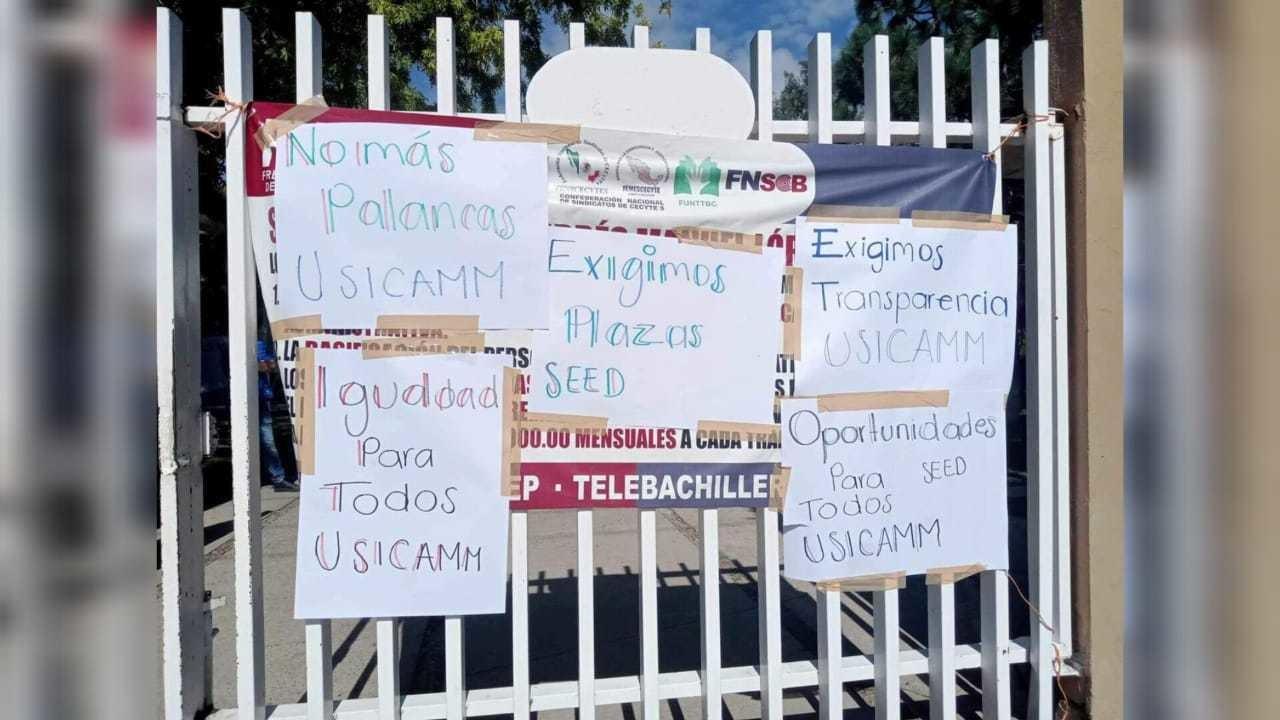 No más
Pallancas
USICAMM
CONFEDERACIÓN NACIONAL
DE SINDICATOS DE CECYTE'S
FEMESCECYTE
FUNTTBC
FNSCB
Exigimos
Plazas
SEED
Exigimos
Transparencia
USICAMM
Igualdad
Para
Todos
USICAMM
00.00 MENSUALES A CADA
EP · TELEBACHILLER
Oportunidades
Para SEED
Todos
USICAMM